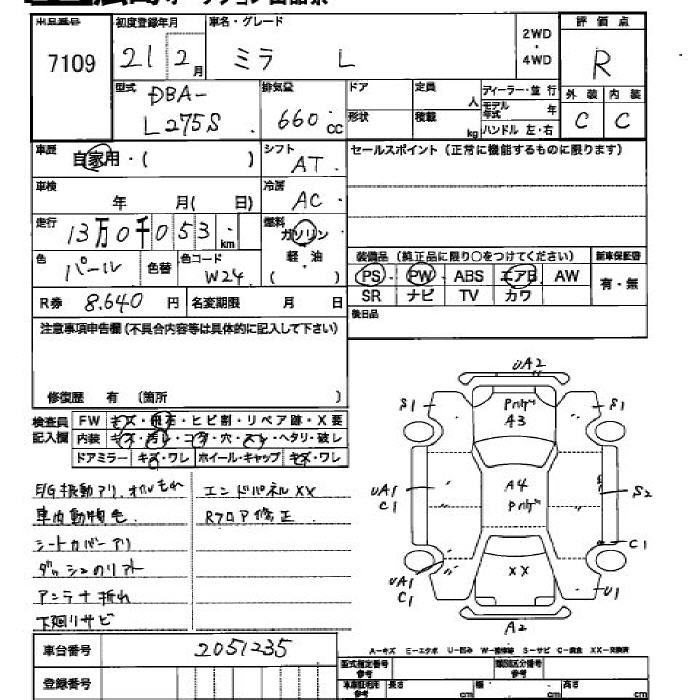 出品番号
7109
初度登録年月
21 2月
車名・グレード
ミラ L
2WD
・
4WD
評価点
R
型式
DBA-
L275S
排気量
660 cc
ドア
形状
定員
人
積載
kg
ディーラー・並行
モデル年式 年
ハンドル 左・右
外装 内装
C C
車歴
自家用・( )
シフト
AT
セールスポイント(正常に機能するものに限ります)
車検
年 月( 日)
冷房
AC
走行
13万0千053 km
燃料
ガソリン
軽・油
( )
色
パール
色替
色コード
W24
装備品(純正品に限り○をつけてください)
新車保証書
PS PW ABS エアB AW
SR ナビ TV カワ
有・無
R券 8,640 円
名変期限 月 日
後日品
注意事項申告欄(不具合内容等は具体的に記入して下さい)
修復歴 有 (箇所 )
検査員
記入欄
FW キズ・飛石・ヒビ割・リペア跡・X要
内装 キズ・汚レ・コゲ・穴・スレ・ヘタリ・破レ
ドアミラー キズ・ワレ ホイール・キャップ キズ・ワレ
E/G振動アリ、オイルもれ
車内動物毛
シートカバーアリ
ダッシュのリアト
アンテナ折れ
下廻リサビ
エンドパネルXX
Rフロア修正
UA2
S1
S1
A3
A4
UA1
C1
S2
C1
UA1
C1
XX
U1
A2
車台番号 2051235
登録番号
A-キズ E-エクボ U-凹み W-補修跡 S-サビ C-腐食 XX-交換済
型式指定番号
参考
類別区分番号
参考
車庫証明用
参考
長さ cm
幅 cm
高さ cm